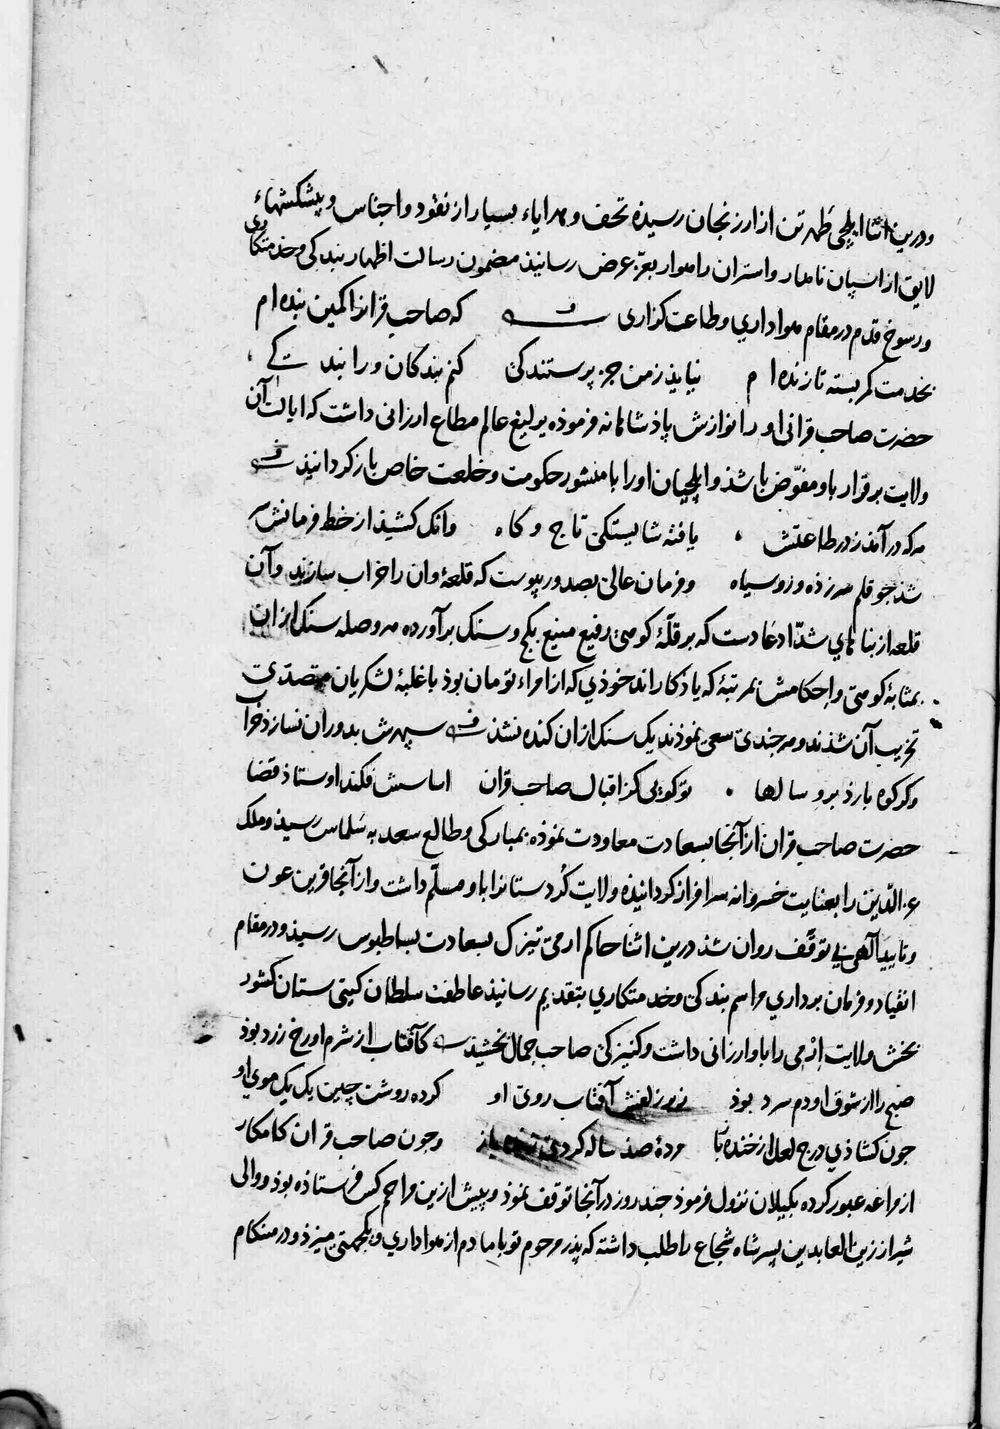 ودرین اثنا ایلچی طهرتن از ارزنجان رسیذه تحف وهدایاء بسیار از نقود واجناس وپیشکشهاء
لایق از اسپان نامدار واستران راهوار بعزّ عرض رسانیذ مضمون رسالت اظهار بندکی وخدمتکاری
ورسوخ قدم در مقام هواداری وطاعت کزاری که صاحب قرانرا کمین بنده ام
بخدمت کمر بسته تا زنده ام نیایذ ز من جز پرستندکی کنم بندکان ورا بندکی
حضرت صاحب قرانی اورا نوازش پاذشاهانه فرموذه یرلیغ عالم مطاع ارزانی داشت که ایالت آن
ولایت برقرار باو مفوّض باشذ وایلچیان اورا با منشور حکومت وخلعت خاص باز کردانیذ
هرکه درآمذ ز در طاعتش یافته شایستکی تاج وکاه وانک کشیذ از خط فرمانش سر
شذ جو قلم سرزذه وروسیاه وفرمان عالی بصدور پیوست که قلعۀ وان را خراب سازند وآن
قلعه از بناهای شدّاد عادست که بر قلّۀ کوهی رفیع منیع بکج وسنک برآورده هر وصله سنک از ان
بمثابۀ کوهی واحکامش بمرتبۀ که یاذکار اندخوذی که از امراء تومان بوذ با غلبۀ لشکریان متصدّی
تخریب آن شذند وهرجندی سعی نموذند یک سنک ازان کنده نشذ سپهرش بدوران نسازذ خراب
وکر کوه بارذ برو سالها تو کویی کز اقبال صاحب قران اساسش فکند اوستاذ قضا
حضرت صاحب قران از آنجا بسعادت معاودت نموذه بمبارکی وطالع سعد به سلماس رسیذ وملک
عزّ الدّین را بعنایت خسروانه سرافراز کردانیذه ولایت کُردستانرا باو مسلّم داشت واز آنجا قرین عون
وتایید آلهی بی توقّف روان شذ درین اثنا حاکم ارمی تیزک بسعادت بساطبوس رسیذ ودر مقام
انقیاد وفرمان برداری مراسم بندکی وخدمتکاری بتقدیم رسانیذ عاطفت سلطان کیتی ستان کشور
بخش ولایت ارمی را باو ارزانی داشت وکنیزکی صاحب جمال بخشیذ کآفتاب از شرم اورخ زرد بوذ
صبح را از شوق او دم سرد بوذ زلفش آفتاب روی او کرده روشن چین یک یک موی او
جون کشاذی درج لعل از خنده باز مردۀ صذ ساله کردی زنده باز وجون صاحب قران کامکار
از مراغه عبور کرده بکیلان نزول فرموذ جند روز در آنجا توقف نموذ وپیش ازین مراحم کس فرستاذه بوذ ووالی
شیراز زین العابدین پسر شاه شجاع را طلب داشته که پذر مرحوم تو با ما دم از هواداری ویکجهتی میزذ ودر هنکام